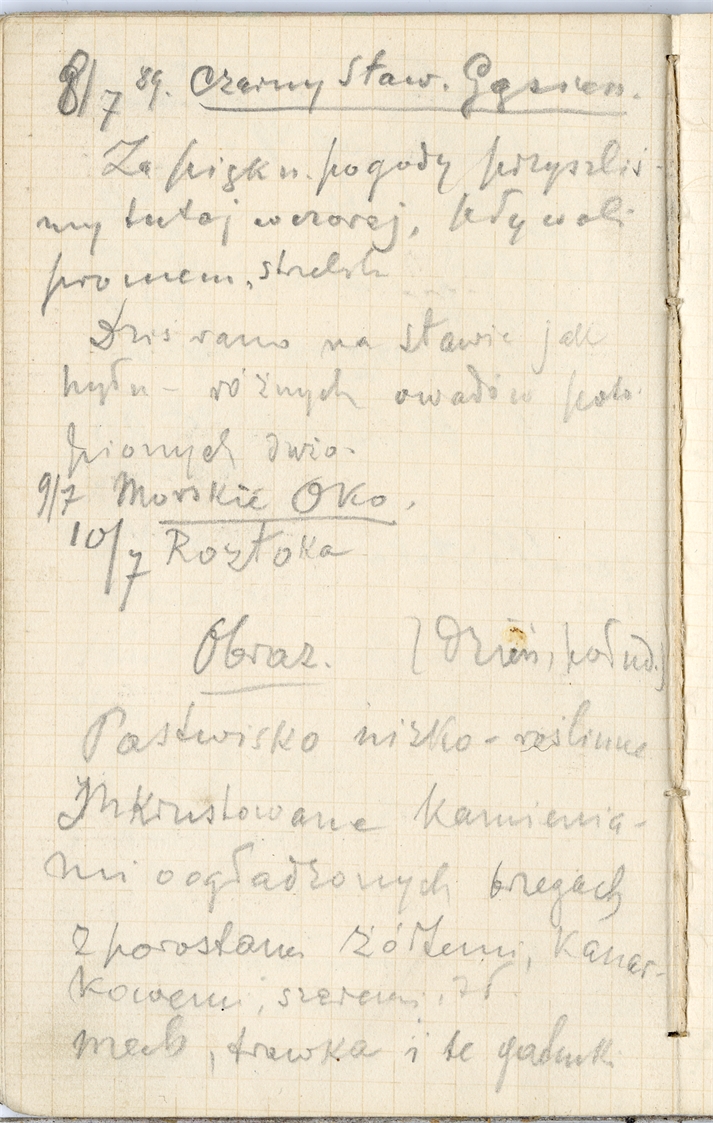 8/7 89. Czarny Staw. Gąsien.
Za piękn. pogody przyszliś-
my tutaj wczoraj, pływali
promem,
Dziś rano na stawie jak
różnych owadów poto-
pionych
9/7 Morskie Oko.
10/7 Roztoka
Obraz. (Dzień, połud.)
Pastwisko nizko-roślinne
Inkrustowane kamienia-
mi o ogładzonych brzegach
z porostami żółtemi, kanar-
kowemi, szaremi,
mech, trawka i te gatunki